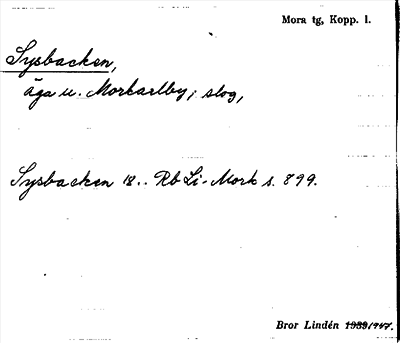 Mora tg, Kopp. l.
Sysbacken,
äga u. Morkarlby; slog,
Sysbacken 18.. Rb Li-Mork s. 899.
Bror Lindén 1939/1947.